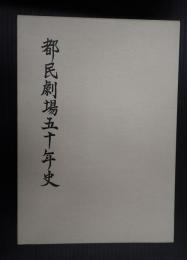 都民劇場五十年史